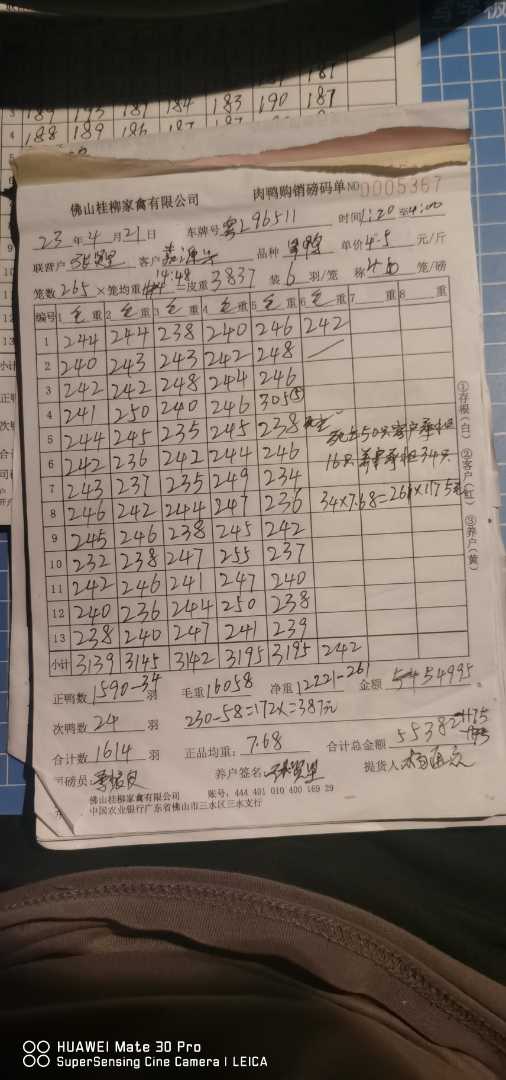 181
3 189 193 181 184 183 190 187
4 188 189 186 187
佛山桂柳家禽有限公司 肉鸭购销磅码单 NO 0005367
23年4月21日 车牌号 粤L96511 时间1:20至4:00
联营户 客户 品种 单价4.5元/斤
笼数265×笼均重14.48=皮重3837 装6羽/笼 称 笼/磅
编号 1毛重 2毛重 3毛重 4毛重 5毛重 6毛重 7重 8重
1 244 244 238 240 246 242
2 240 243 243 242 248
3 242 242 248 244 246
4 241 250 240 246 305⑤
5 244 245 235 245 238
6 242 236 242 244 246
7 243 237 235 249 234
8 246 242 244 247 236
9 245 246 238 245 242
10 232 238 247 255 237
11 242 246 241 247 240
12 240 236 244 250 238
13 238 240 247 241 239
小计 3139 3145 3142 3195 3195 242
50只客户承担
16只 承担34只
34×7.68=261×
①存根(白) ②客户(红) ③养户(黄)
正鸭数1590-34羽 毛重16058 净重12221-261 金额 54995
次鸭数24羽 230-58=172×=387元
合计数1614羽 正品均重:7.68 合计总金额55382
司磅员: 养户签名: 提货人:
佛山桂柳家禽有限公司 账号:444 401 010 400 169 29
中国农业银行广东省佛山市三水区三水支行
HUAWEI Mate 30 Pro
SuperSensing Cine Camera | LEICA